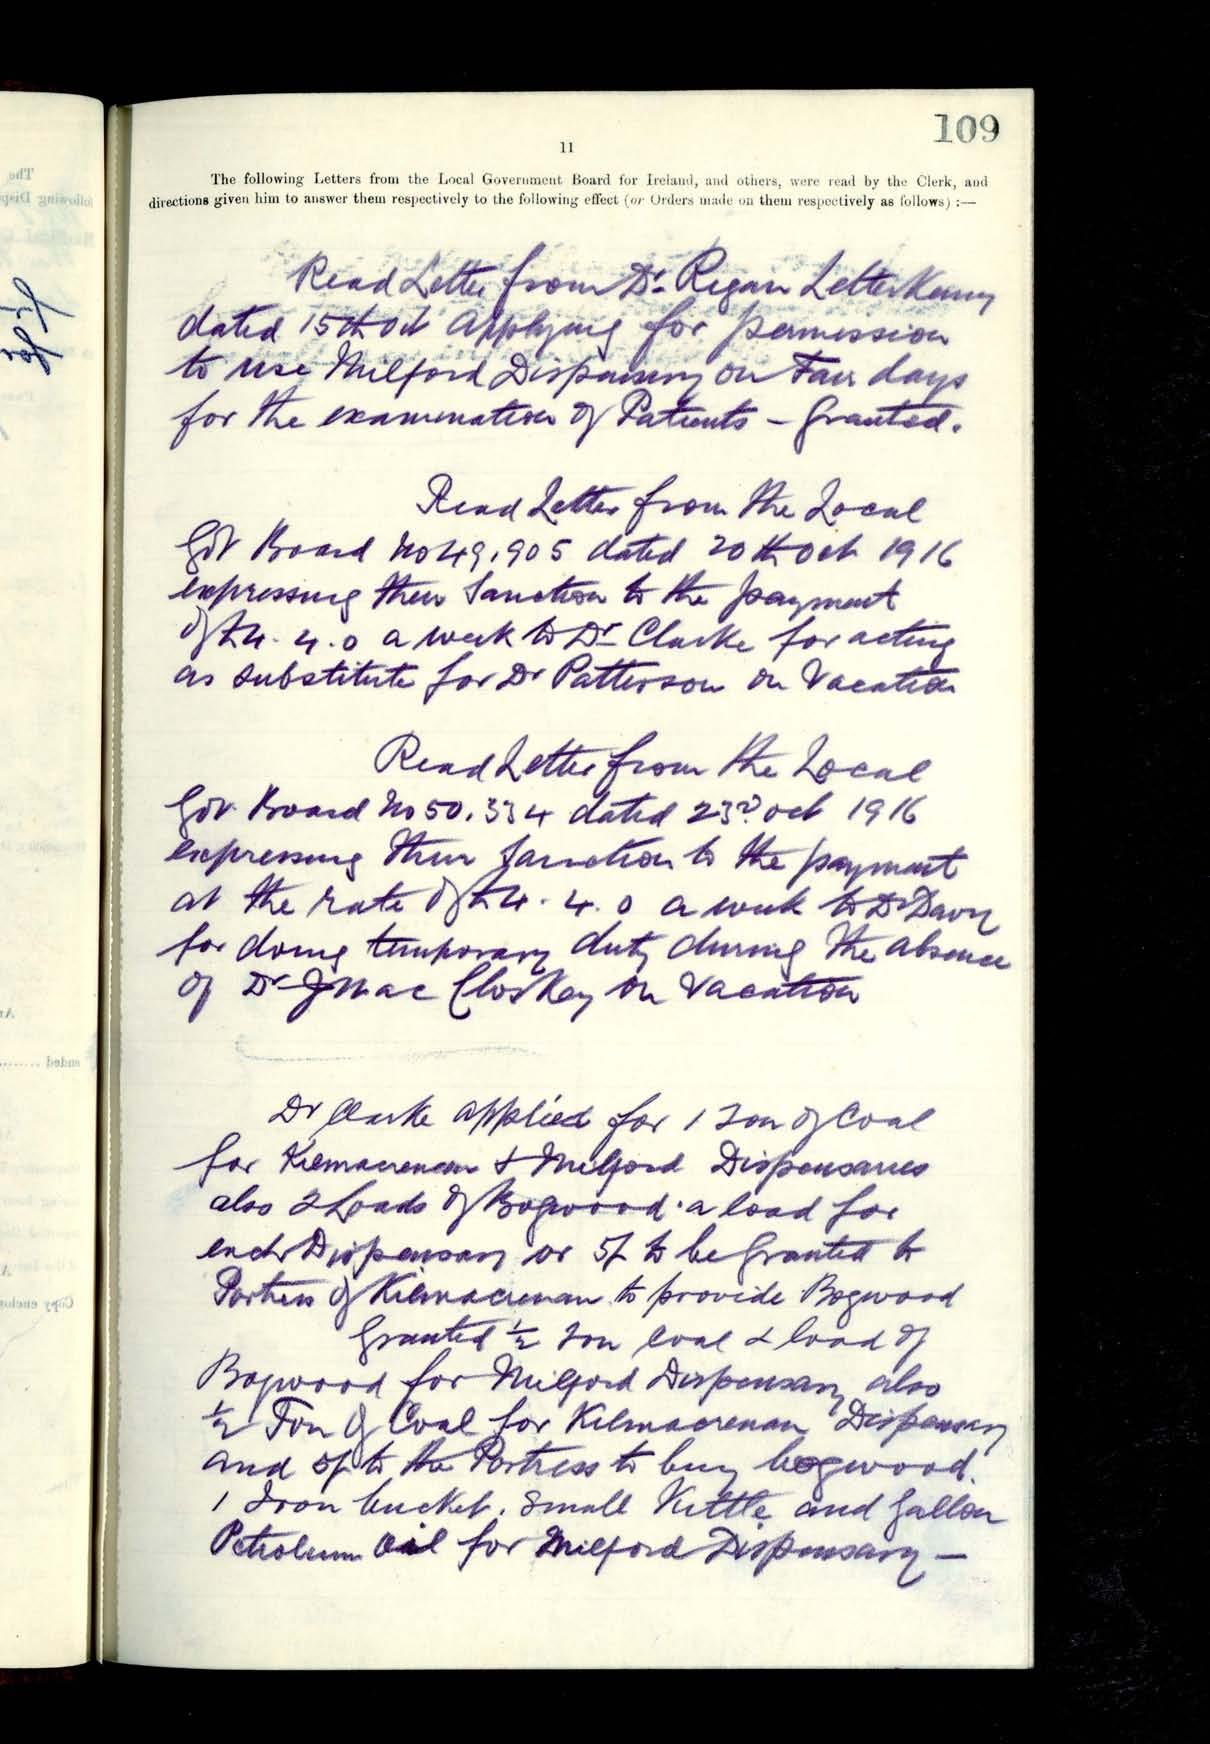 109
11
The following Letters from the Local Government Board for Ireland, and others, were read by the Clerk, and
directions given him to answer them respectively to the following effect (or Orders made on them respectively as follows) :—
Read Letter from Dr. Regan LetterKenny
dated 15th Oct applying for permission
to use Milford Dispensary on Fair days
for the examination of Patients – Granted.
Read Letter from the Local
Gov Board No 49.905 dated 20th Oct 1916
expressing their Sanction to the payment
of £4. 4. 0 a week to Dr Clarke for acting
as substitute for Dr Patterson on Vacation
Read Letter from the Local
Gov. Board No 50.334 dated 23rd Oct 1916
expressing their Sanction to the payment
at the rate of £4. 4. 0 a week to Dr
for doing temporary duty during the absence
of Dr J MacCloskey on Vacation
Dr Clarke applied for 1 Ton of Coal
for Kilmacrenan & Milford Dispensaries
also 2 Loads of Bogwood. a load for
each Dispensary or 5/- to be Granted to
Portress of Kilmacrenan to provide Bogwood
Granted ½ Ton Coal & load of
Bogwood for Milford Dispensary also
½ Ton of Coal for Kilmacrenan Dispensary
and 5/- to the Portress to buy bogwood.
1 Iron bucket. Small Kettle and Gallon
Petroleum Oil for Milford Dispensary —